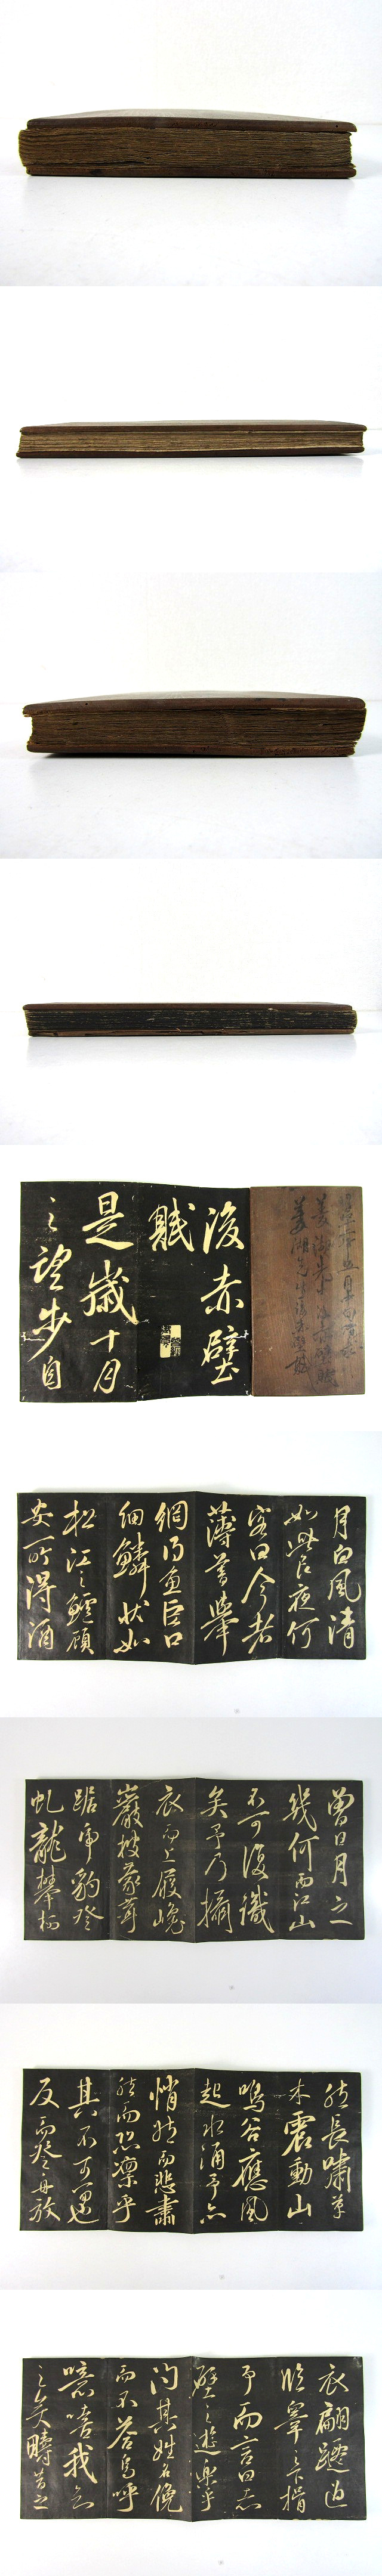 後赤壁
賦
是歲十月
之望步自
月白風清
如此良夜何
客曰今者
薄暮舉
網得魚巨口
細鱗狀如
松江之鱸顧
安所得酒
曾日月之
幾何而江山
不可復識
矣予乃攝
衣而上履巉
巖披蒙茸
踞虎豹登
虬龍攀栖
然長嘯草
木震動山
鳴谷應風
起水涌予亦
悄然而悲肅
然而恐凜乎
其不可留也
反而登舟放
衣翩躚過
臨皋之下揖
予而言曰赤
壁之遊樂乎
問其姓名俛
而不答嗚呼
噫嘻我知
之矣疇昔之